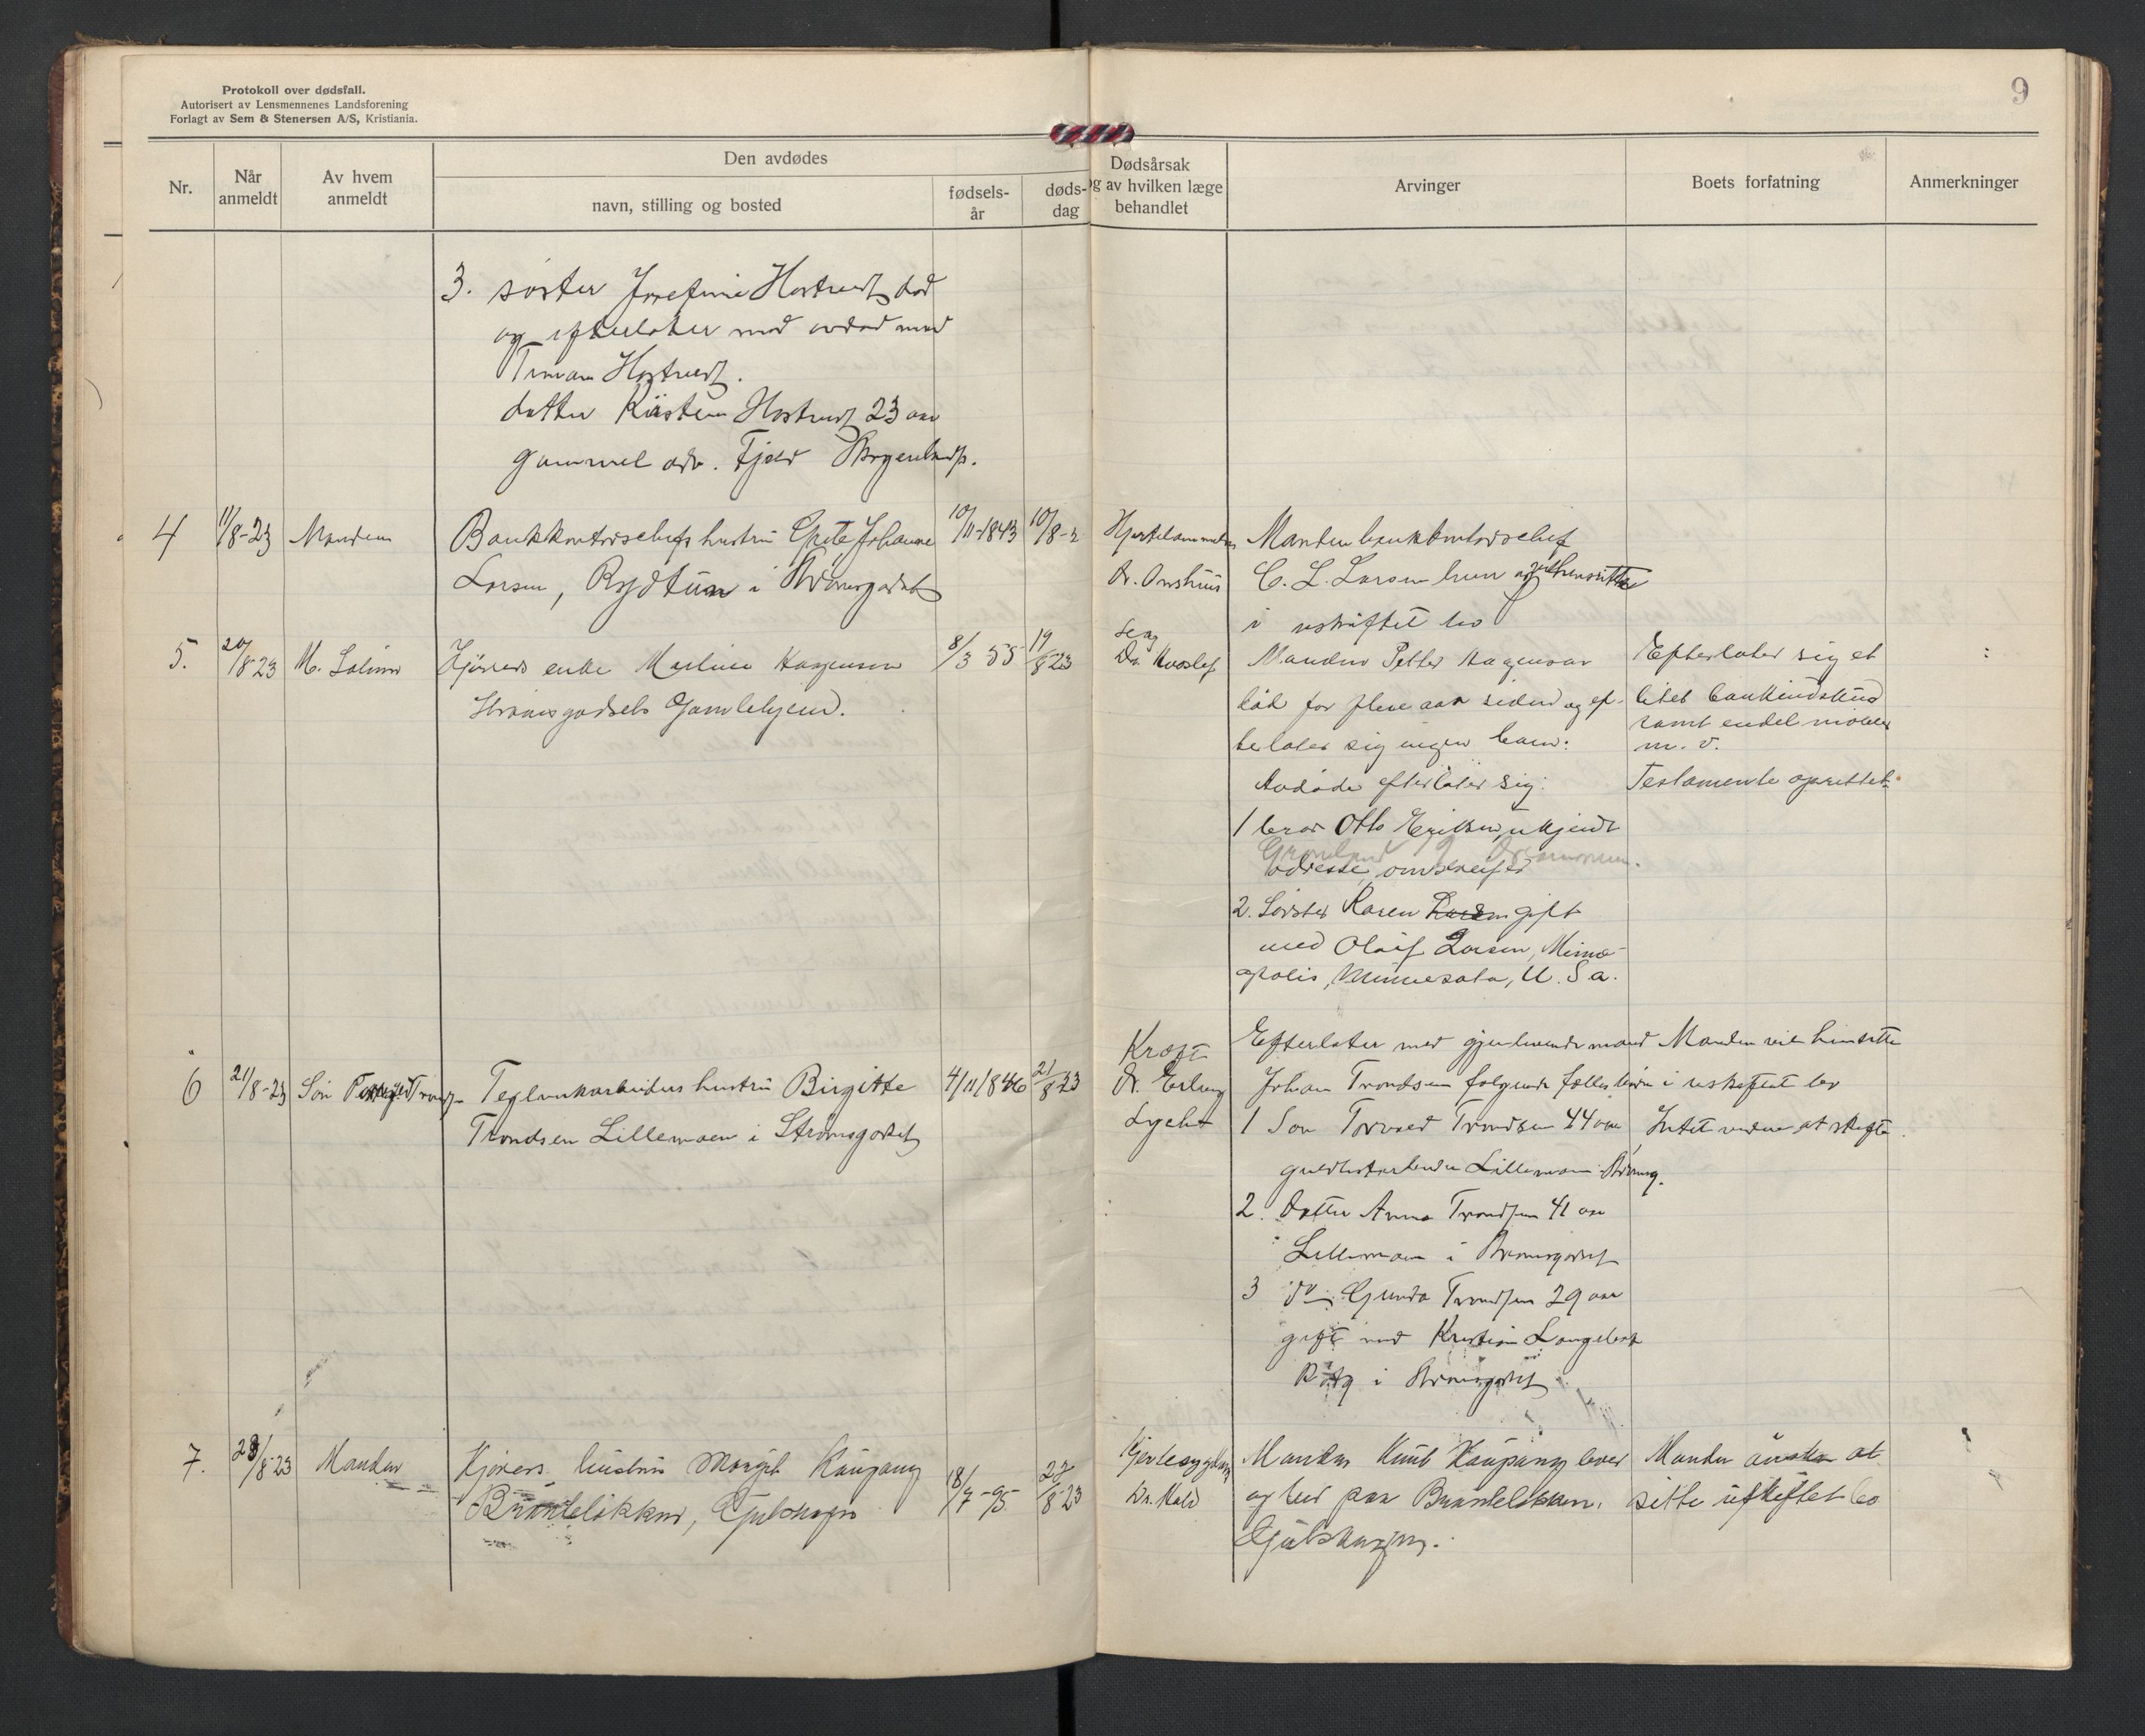 Protokoll over dødsfall.
Autorisert av Lensmennenes Landsforening
Forlagt av Sem & Stenersen A/S, Kristiania.
9
Nr.
Når anmeldt
Av hvem anmeldt
Den avdødes
navn, stilling og bosted
fødsels-år
døds-dag
Dødsårsak
og av hvilken læge
behandlet
Arvinger
Boets forfatning
Anmerkninger
3. søster Josefine Hostvedt død
og efterlater med avdød mand
Hostvedt.
datter Kirsten Hostvedt 23 aar
gammel adr. Fjeld
4
11/8-23
Manden
Bankkontorschefs hustru Grete Johanne
Larsen, Rydtun i Strømsgodset
10/11-1843
10/8-2
Hjertelammelse
Dr.
Manden bankkontorschef
C. L. Larsen
i uskiftet bo
5.
20/8-23
M. Solum
Kjørers enke Martine Haagensen
Strømsgodsets Gamlehjem.
8/3 55
19/8-23
Dr.
Manden Petter Haagensen
død for flere aar siden og ef-
terlater sig ingen barn.
Avdøde efterlater sig:
1 bror Otto Eriksen, ukjendt
adresse, omstreifer
Grønland Drammen.
2. Søster Karen Larsen gift
med Oluf Larsen, Minne-
apolis, Minnesota, U. S a.
Efterlater sig et
litet bankindskud
samt endel møbler
m. v.
Testamente oprettet.
6
21/8-23
Søn Trondsen
Teglverkarbeiders hustru Birgitte
Trondsen Lillemoen i Strømsgodset
4/11 1846
21/8 23
Kræft
Dr. Erling
Lycke
Efterlater med gjenlevende mand
Johan Trondsen følgende fælles børn
1 Søn Torvald Trondsen 44 aar
Lillemoen Strømsg.
2. Datter Anna Trondsen 41 aar
Lillemoen i Strømsgodset
3 do Gunda Trondsen 29 aar
gift med Kristian
i Strømsgodset
Manden vil hensitte
i uskiftet bo
Intet videre at skifte.
7.
28/8-23
Manden
Kjørers hustru Margit Kaupang
Bråteløkken, Gulskogen
18/7-95
27/8-23
Hjertesygdom
Dr. Hald
Manden Knut Kaupang lever
og bor paa
Gulskogen.
Manden ønsker at
sitte i uskiftet bo